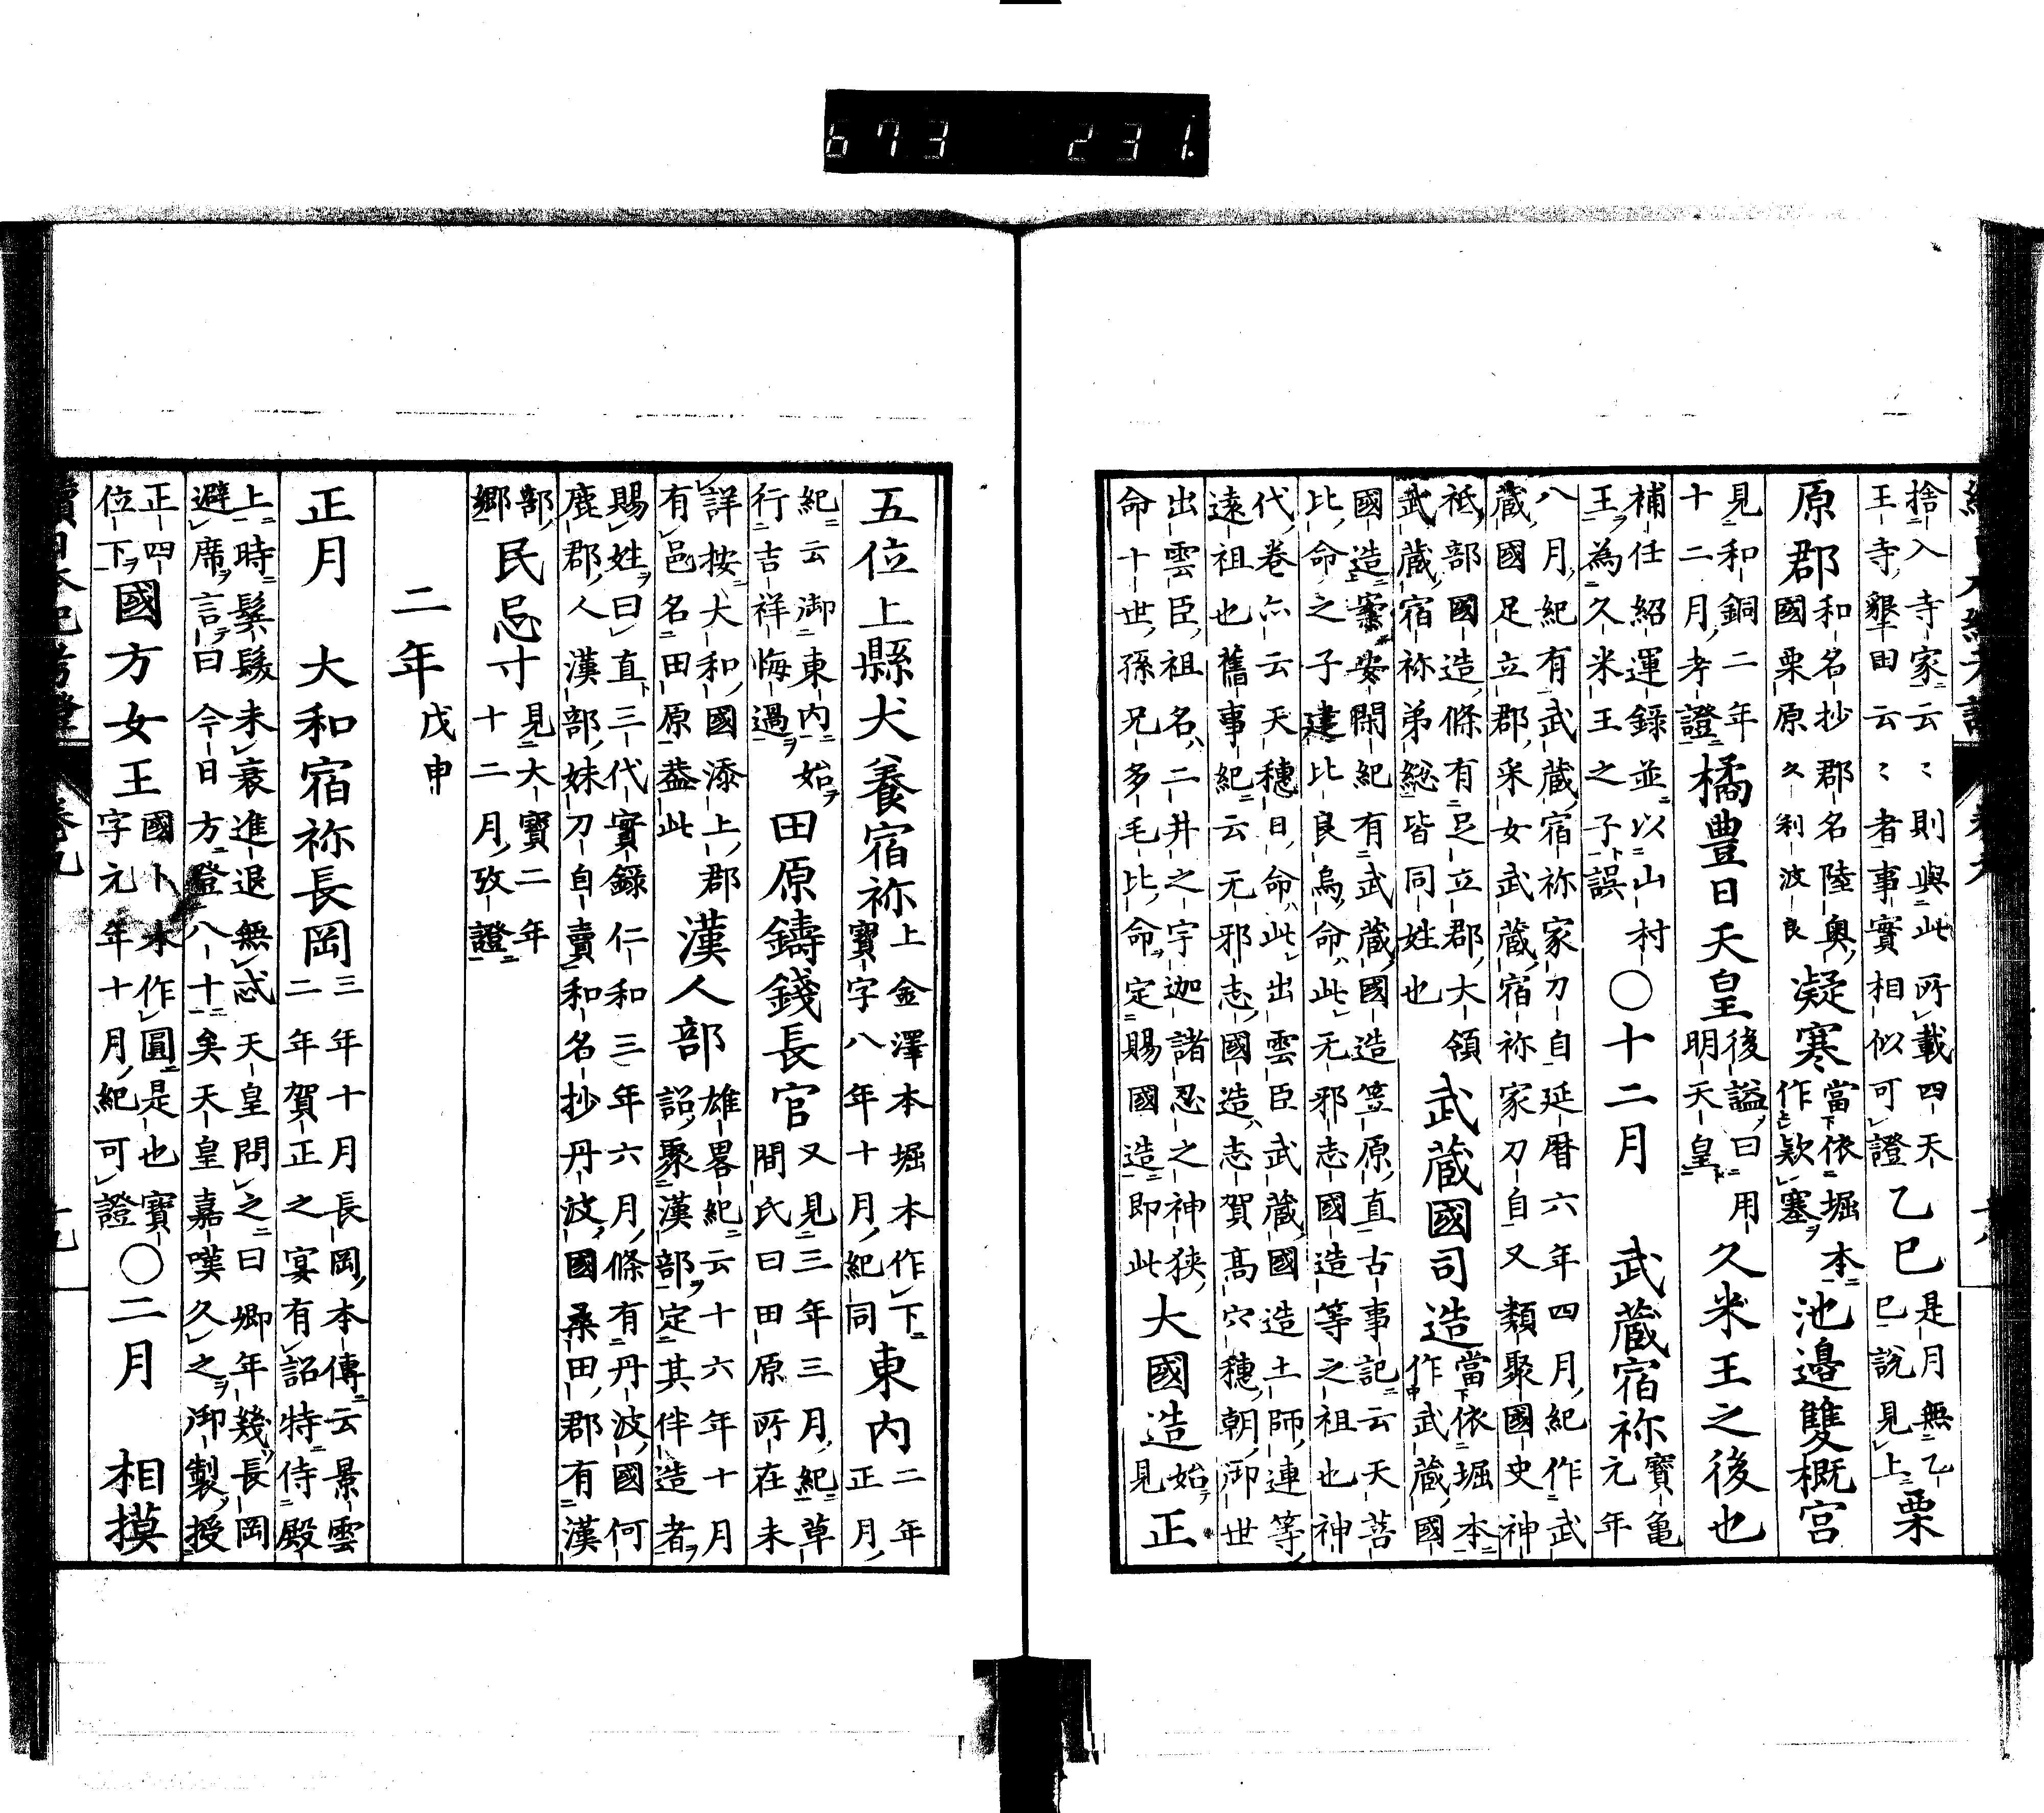 673 231.
捨入寺家云〻則與此所載四天
王寺墾田云〻者事實相似可證
乙巳
是月無乙
巳說見上
栗
原郡
和名抄郡名陸奥
國栗原久利波良
凝寒
當依堀本
作歟塞
池邉雙槻宮
見和銅二年
十二月考證
橘豊日天皇
後謚曰用
明天皇
久米王之後也
補任紹運錄並以山村
王為久米王之子誤
〇十二月 武蔵宿祢
寶亀
元年
八月紀有武蔵宿祢家刀自延暦六年四月紀作武
蔵國足立郡釆女武蔵宿祢家刀自又類聚國史神
祗部國造條有足立郡大領
武蔵宿祢弟総皆同姓也
武蔵國司造
當依堀本
作武蔵國
國造案安閑紀有武蔵國造笠原直古事記云天菩
比命之子建比良鳥命此无邪志國造等之祖也神
代卷亦云天穗日命此出雲臣武蔵國造土師連等
遠祖也舊事紀云无邪志國造志賀髙穴穗朝御世
出雲臣祖名二井之宇迦諸忍之神狹
命十世孫兄多毛比命定賜國造即此
大國造
始
見
正
五位上縣犬養宿祢
上金澤本堀本作下
寶字八年十月紀同
東内
二年
正月
紀云御東内始
行吉祥悔過
田原鑄錢長官
又見三年三月紀草
間氏曰田原所在未
詳按大和國添上郡
有邑名田原葢此
漢人部
雄畧紀云十六年十月
詔聚漢部定其伴造者
賜姓曰直三代實錄仁和三年六月條有丹波國何
鹿郡人漢部妹刀自賣和名抄丹波國桑田郡有漢
部
郷
民忌寸
見大寶二年
十二月攷證
二年
戊申
正月 大和宿祢長岡
三年十月長岡本傳云景雲
二年賀正之宴有詔特侍殿
上時鬢髮未衰進退無忒天皇問之曰卿年幾長岡
避席言曰今日方登八十矣天皇嘉嘆久之御製授
正四
位下
國方女王
國卜本作圓是也寶
字元年十月紀可證
〇二月 相摸
續日本紀考證 卷九